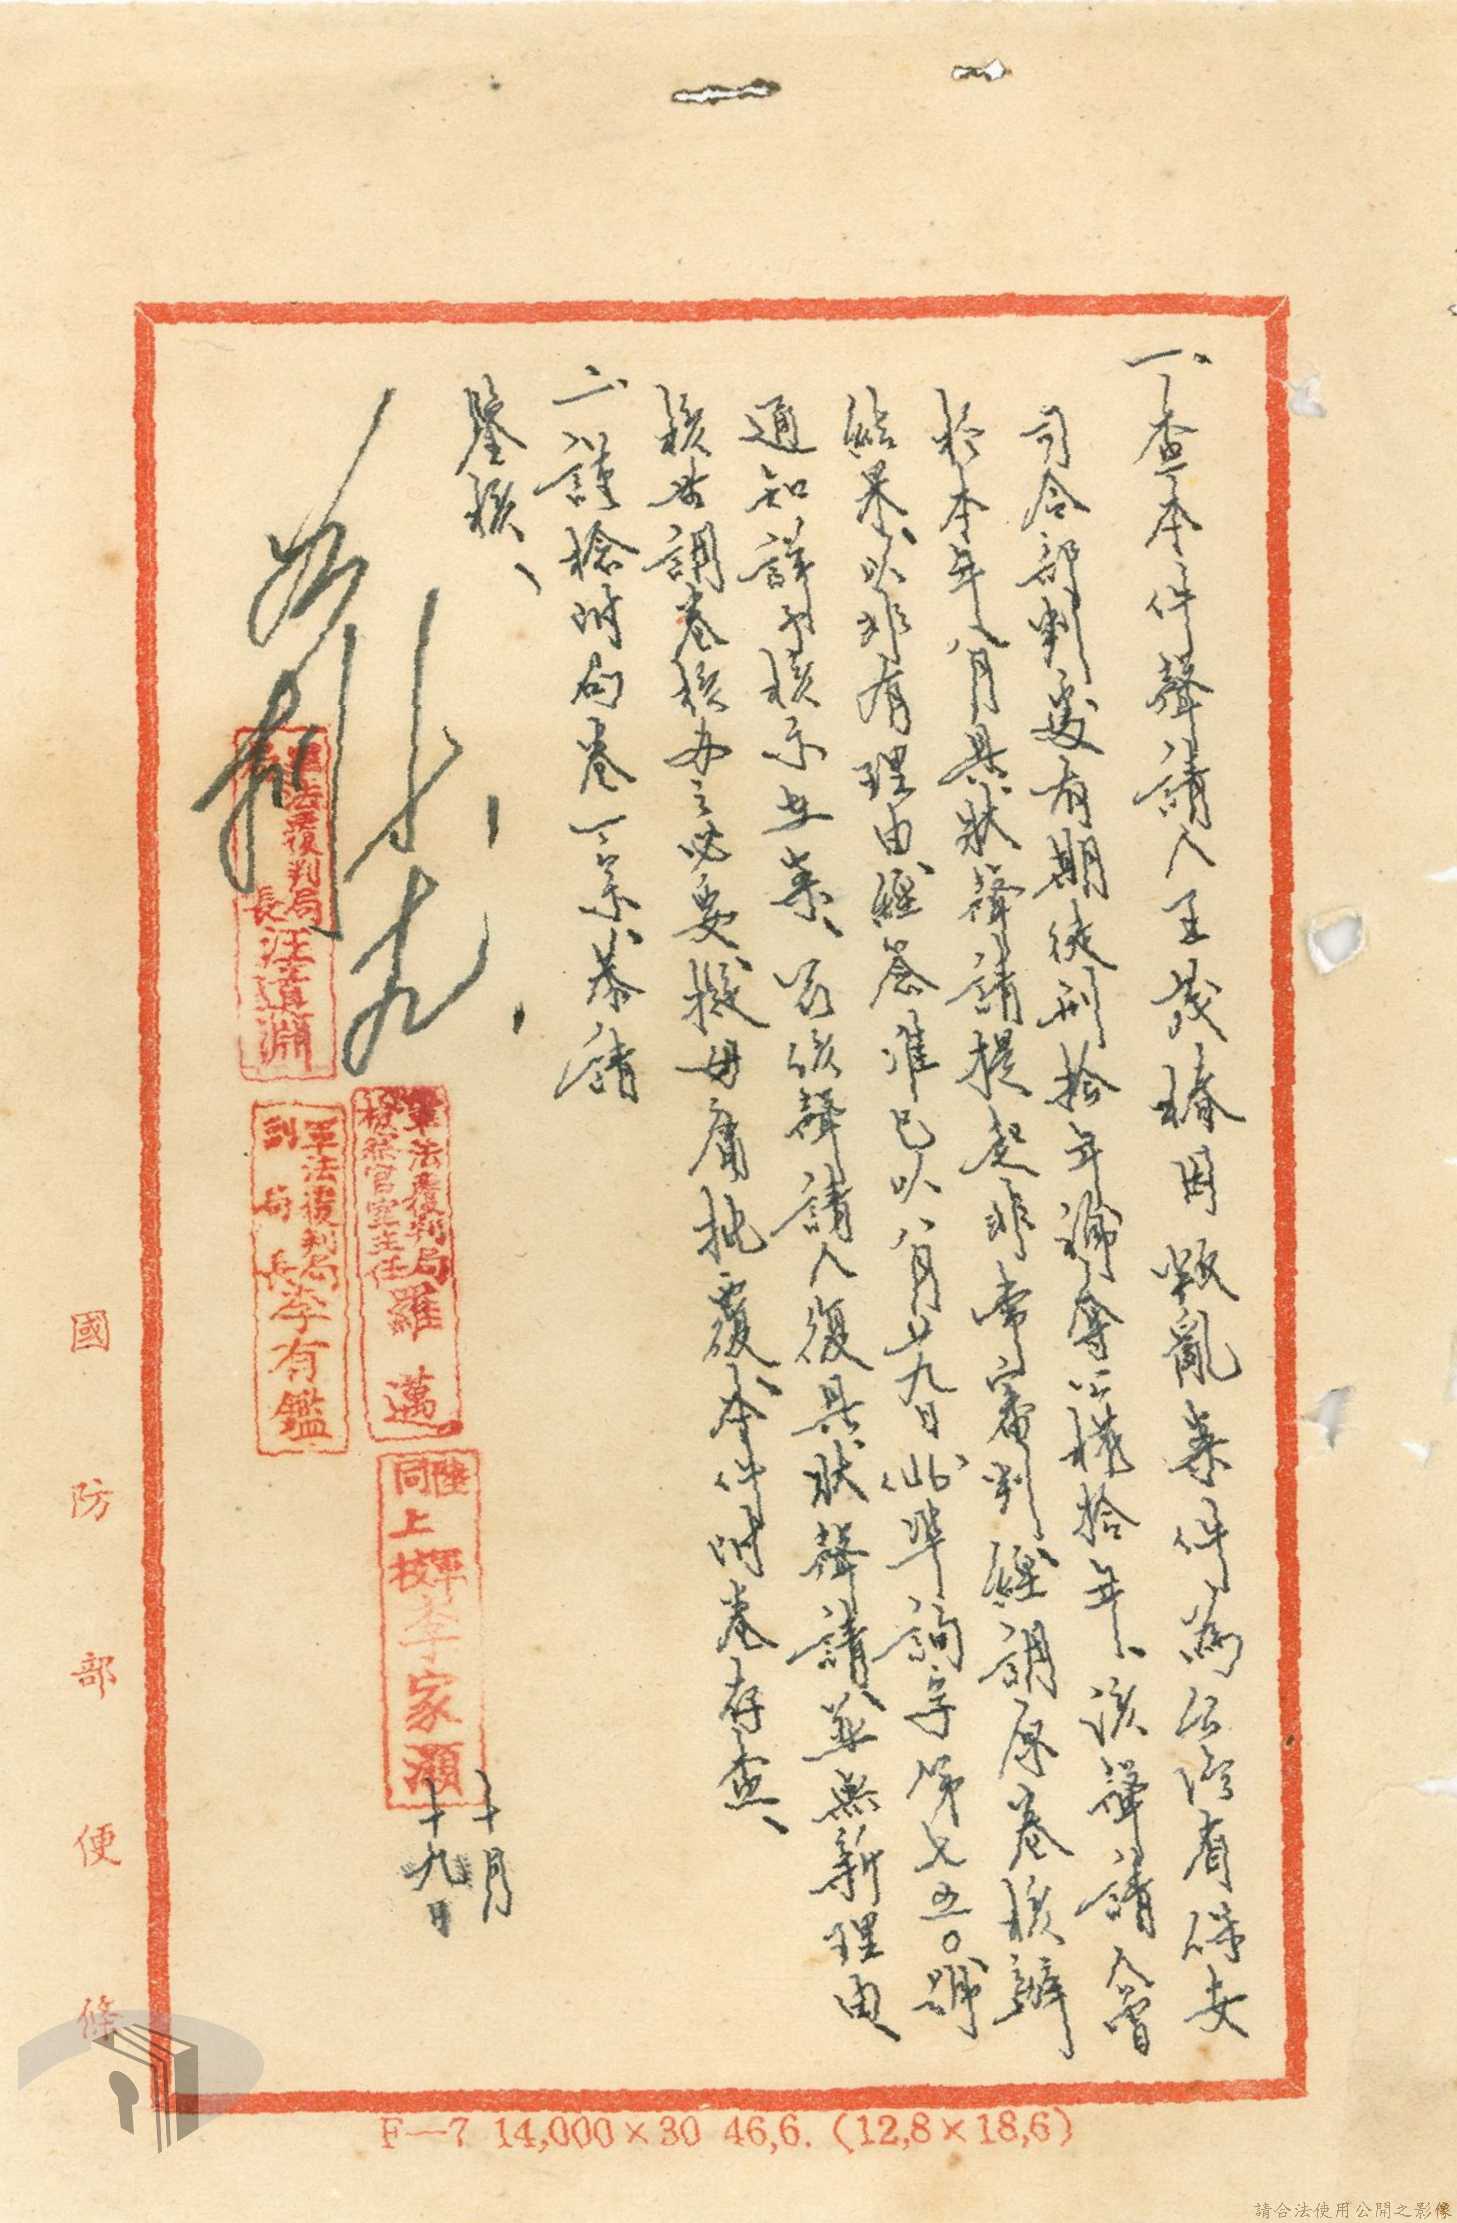 一、查本件聲請人王茂椿因叛亂案件為台灣省保安
司令部判處有期徒刑拾年褫奪公權拾年、該聲請人曾
於本年八月具狀聲請提起非常審判、經調原卷核辦
結果、以非有理由、經簽准已以八月廿九日(46)準詢字第七五〇號
通知詳予核示在案、茲該聲請人復具狀聲請、並無新理由
核無調卷核办之必要、擬毋庸批覆、本件附卷存查、
二、謹檢附局卷一宗、恭請
鑒核、
十、
十九、
軍法覆判局
局長汪道淵
軍法覆判局
副局長李有鑑
軍法覆判局
檢察官室主任羅邁
陸軍
同上校李家灝
十月
十九日
國防部便條
F—7 14,000×30 46,6. (12,8×18,6)
請合法使用公開之影像